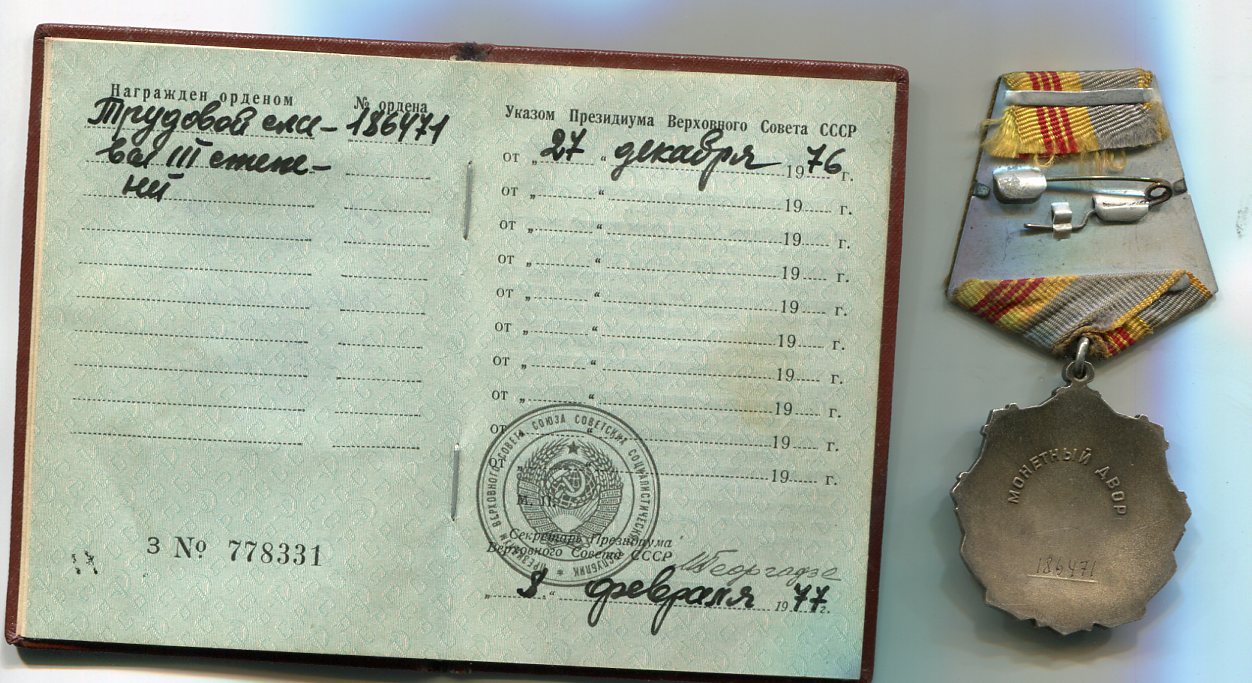 Награжден орденом
№ ордена
Трудовой сла-
186471
вы III степе-
ни
З № 778331
Указом Президиума Верховного Совета СССР
от „ 27 “ декабря 1976 г.
от „ “ 19 г.
от „ “ 19 г.
от „ “ 19 г.
от „ “ 19 г.
от „ “ 19 г.
от „ “ 19 г.
от „ “ 19 г.
от „ “ 19 г.
от „ “ 19 г.
М. П.
ПРЕЗИДИУМ ВЕРХОВНОГО СОВЕТА СОЮЗА СОВЕТСКИХ СОЦИАЛИСТИЧЕСКИХ РЕСПУБЛИК
Секретарь Президиума
Верховного Совета СССР
МГеоргадзе
„ 8 “ февраля 1977 г.
МОНЕТНЫЙ ДВОР
186471